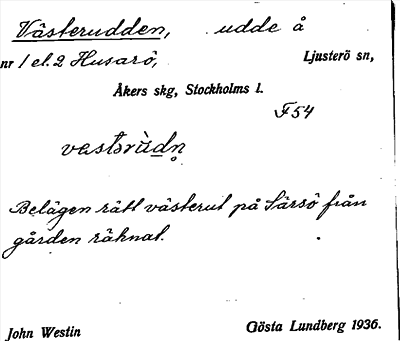 Västerudden, udde å
nr 1 el. 2 Husarö, Ljusterö sn,
Åkers skg, Stockholms l.
F54
vastsrùdn̥
Belägen rätt västerut på Särsö från
gården räknat.
John Westin Gösta Lundberg 1936.